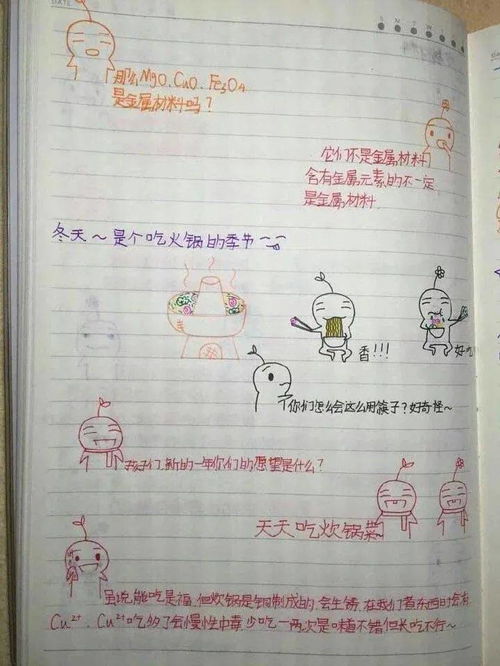 DATE
S M T W
那么MgO、CuO、Fe3O4
是金属材料吗？
它们不是金属材料
含有金属元素的不一定
是金属材料
冬天～是个吃火锅的季节～
香!!!
好吃
你们怎么会这么用筷子？好奇怪～
孩子们,新的一年你们的愿望是什么？
天天吃炊锅菜～
虽说,能吃是福,但炊锅是铜制成的,会生锈,在我们煮东西时会有
Cu²⁺、Cu²⁺吃多了会慢性中毒,少吃一两次是味道不错但长吃不行～